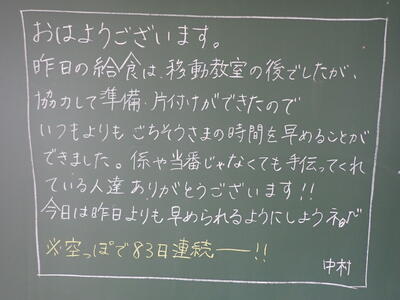 おはようございます。
昨日の給食は、移動教室の後でしたが、
協力して準備・片付けができたので
いつもよりも ごちそうさまの時間を早めることが
できました。係や当番じゃなくても手伝ってくれ
ている人達 ありがとうございます!!
今日は昨日よりも早められるようにしようネ
※空っぽで83日連続ー!!
中村